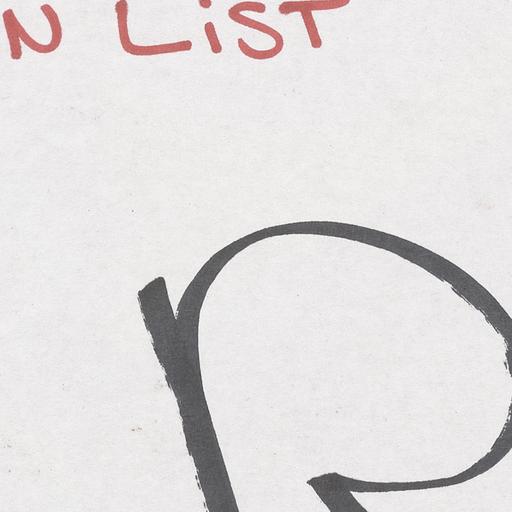 N LiST
R